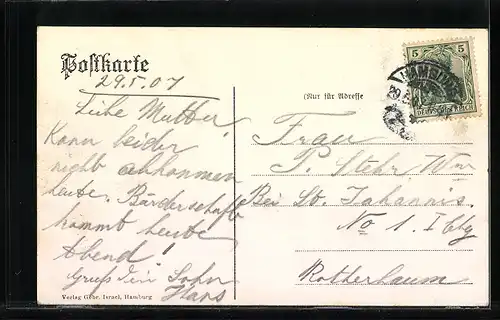 Postkarte
29.5.07
Liebe Mutter!
Kann leider
nicht abkommen
heute. Bäderschafts
kommt heute
Abend!
Gruß dein Sohn
Hans
Verlag Gebr. Israel, Hamburg
(Nur für Adresse
5 5
HAMBURG
Frau
P. Stehr Wn
Bei St. Johannis
No 1. I Etg
Rotherbaum